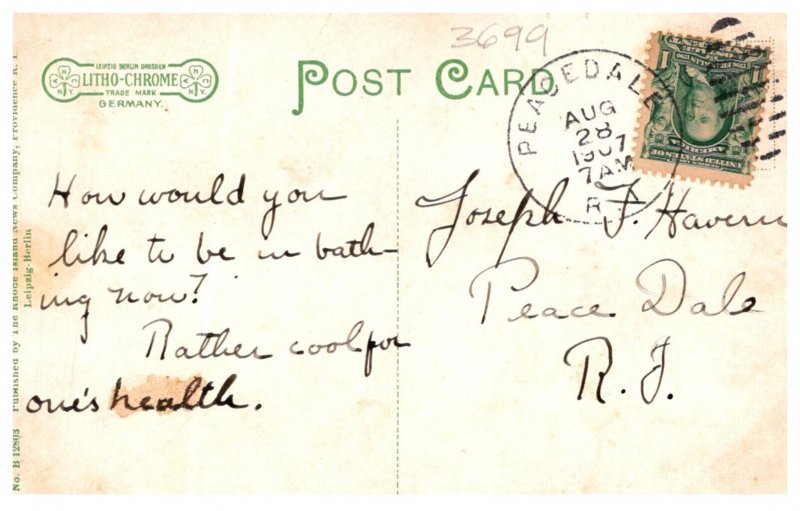 3699
LEIPZIG BERLIN DRESDEN
LITHO-CHROME
TRADE MARK
GERMANY.
POST CARD
PEACEDALE
AUG
28
1907
7AM
R.
How would you
like to be in bath-
ing now?
Rather cool for
one's health.
Joseph F. Havern
Peace Dale
R.I.
No. B 12803 Published by The Rhode Island News Company, Providence R. I
Leipzig-Berlin
1
1
UNITED STATES OF
AMERICA